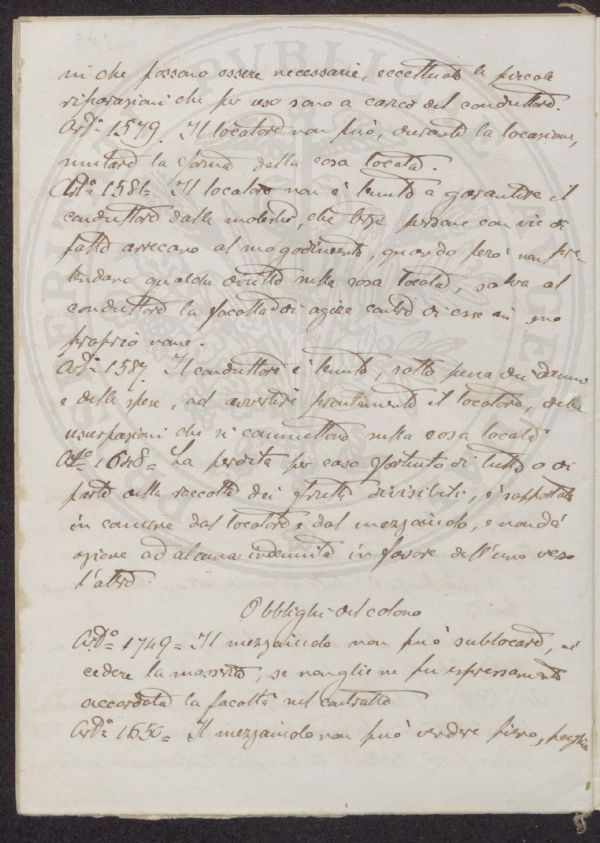 ni che possano essere necessarie, eccettuato le piccole
riparazioni che per uso sono a carico del conduttore.
Art.º 1579. Il locatore non può, durante la locazione,
mutare la forma della cosa locata.
Art.º 1581= Il locatore non è tenuto a garantire il
conduttore dalle molestie, che terze persone con vie di
fatto arrecano al suo godimento, quando però non pre
tendano qualche diritto sulla cosa locata, salva al
conduttore la facoltà di agire contro di esse in suo
proprio nome.
Art.º 1587. Il conduttore è tenuto, sotto pena dei danni
e delle spese, ad avvertire prontamente il locatore, delle
usurpazioni che si commettono sulla cosa locata.
Art.º 1648= La perdita per caso fortuito di tutto o di
parte della raccolta dei frutti divisibili, è sopportata
in comune dal locatore e dal mezzaiuolo, e non dà
azione ad alcuna indennità in favore dell'uno verso
l'altro.
Obblighi del colono
Art.º 1749= Il mezzaiuolo non può sublocare, nè
cedere la masseria, se non gliene fu espressamente
accordata la facoltà nel contratto
Art.º 1650= Il mezzaiuolo non può vendere fieno, paglia